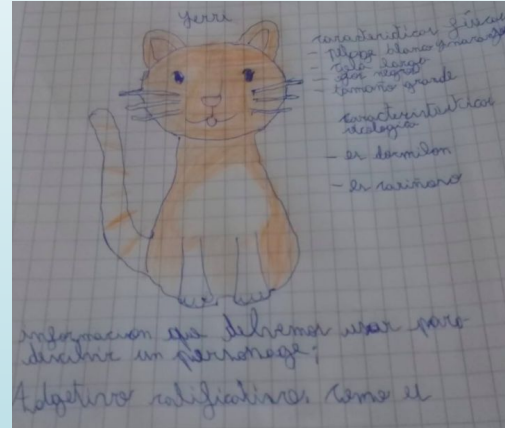 Yerri
caracteristicas físicas
- pelage blanco y naranja
- cola larga
- ojos negros
- tamaño grande
caracteristicas
- es dormilon
- es cariñoso
informacion que debemos usar para
describir un personage:
Adgetivo calificativo. como el